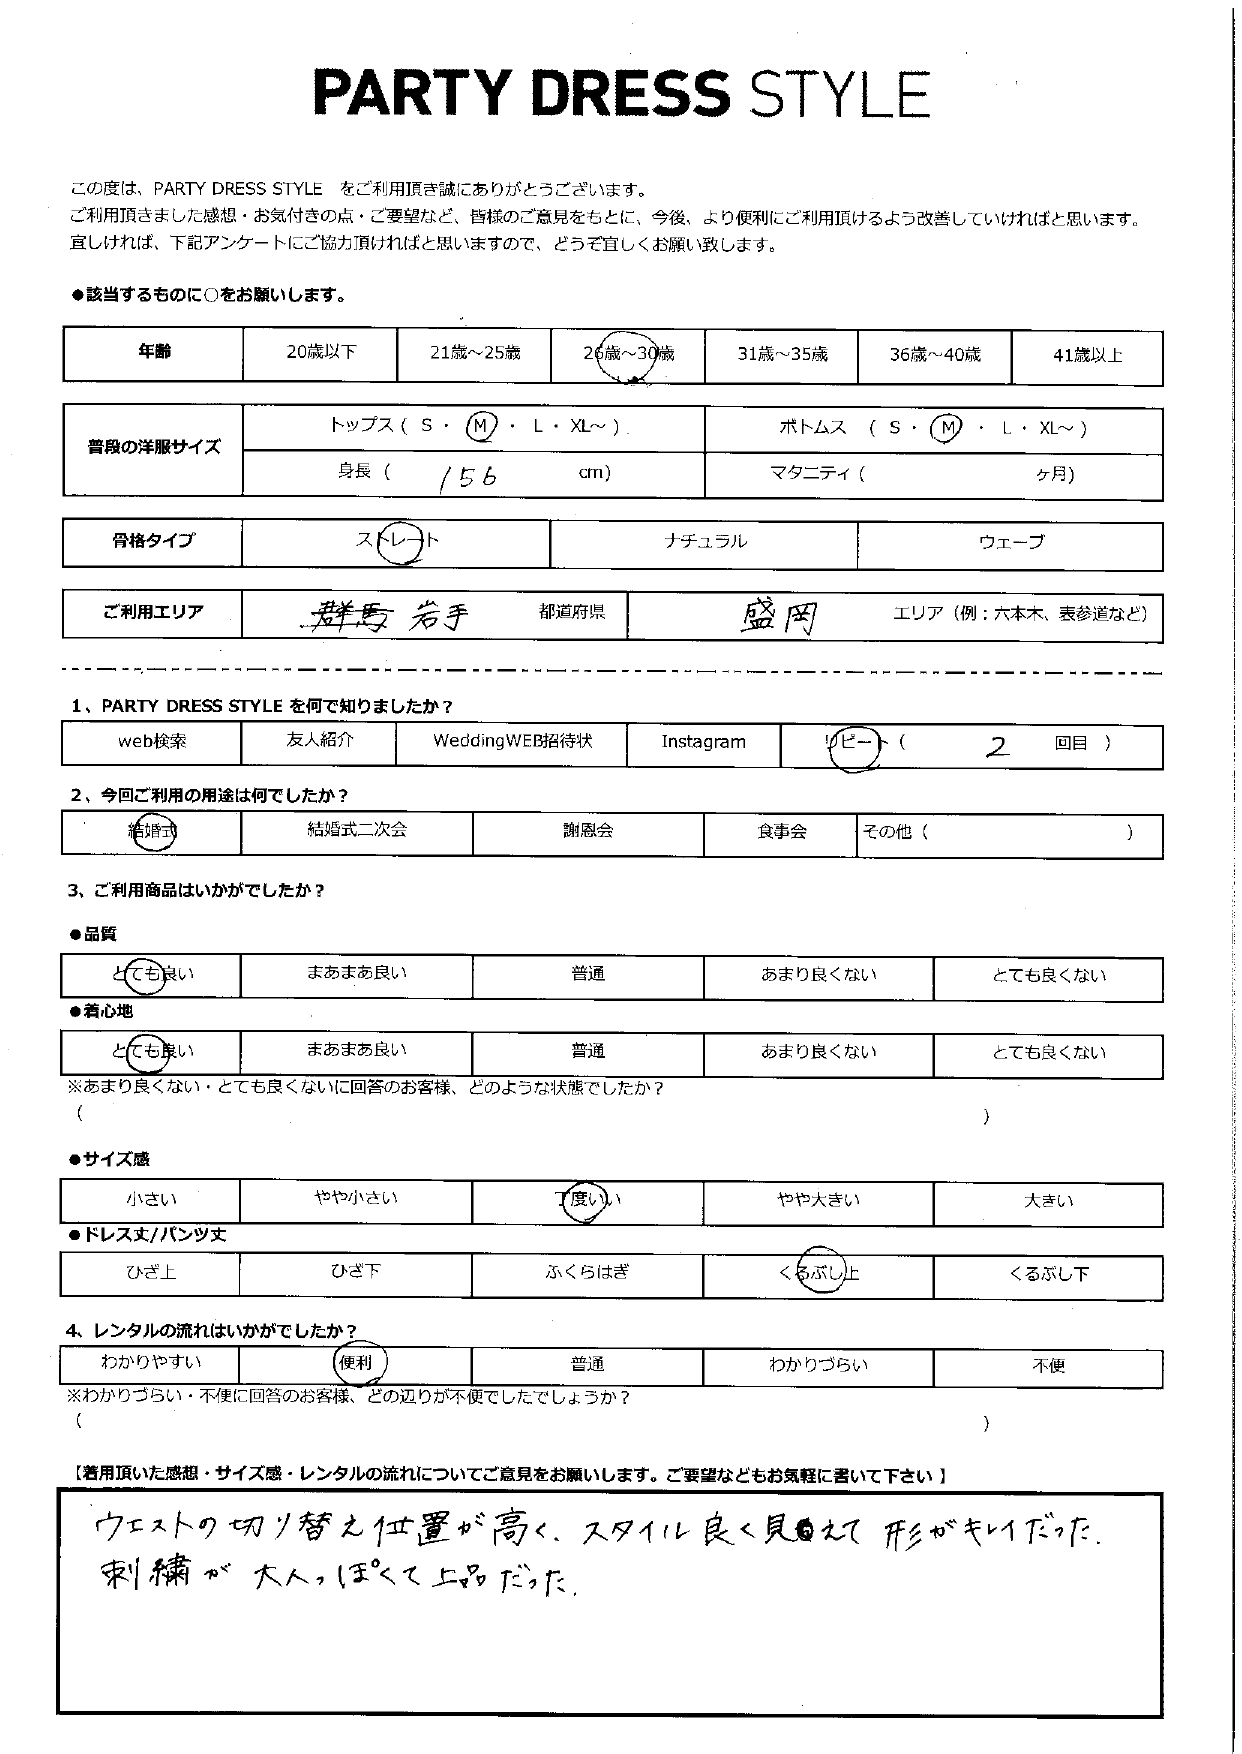 PARTY DRESS STYLE
この度は、PARTY DRESS STYLE をご利用頂き誠にありがとうございます。
ご利用頂きました感想・お気付きの点・ご要望など、皆様のご意見をもとに、今後、より便利にご利用頂けるよう改善していければと思います。
宜しければ、下記アンケートにご協力頂ければと思いますので、どうぞ宜しくお願い致します。
●該当するものに○をお願いします。
年齢 20歳以下 21歳～25歳 26歳～30歳 31歳～35歳 36歳～40歳 41歳以上
普段の洋服サイズ
トップス ( S ・ M ・ L ・ XL～ ) ボトムス ( S ・ M ・ L ・ XL～ )
身長 ( 156 cm) マタニティ ( ヶ月)
骨格タイプ ストレート ナチュラル ウェーブ
ご利用エリア 群馬 岩手 都道府県 盛岡 エリア（例：六本木、表参道など）
1、PARTY DRESS STYLE を何で知りましたか？
web検索 友人紹介 WeddingWEB招待状 Instagram リピート ( 2 回目 )
2、今回ご利用の用途は何でしたか？
結婚式 結婚式二次会 謝恩会 食事会 その他 ( )
3、ご利用商品はいかがでしたか？
●品質
とても良い まあまあ良い 普通 あまり良くない とても良くない
●着心地
とても良い まあまあ良い 普通 あまり良くない とても良くない
※あまり良くない・とても良くないに回答のお客様、どのような状態でしたか？
( )
●サイズ感
小さい やや小さい 丁度いい やや大きい 大きい
●ドレス丈/パンツ丈
ひざ上 ひざ下 ふくらはぎ くるぶし上 くるぶし下
4、レンタルの流れはいかがでしたか？
わかりやすい 便利 普通 わかりづらい 不便
※わかりづらい・不便に回答のお客様、どの辺りが不便でしたでしょうか？
( )
【着用頂いた感想・サイズ感・レンタルの流れについてご意見をお願いします。ご要望などもお気軽に書いて下さい 】
ウエストの切り替え位置が高く、スタイル良く見えて 形がキレイだった.
刺繍が 大人っぽくて上品だった.